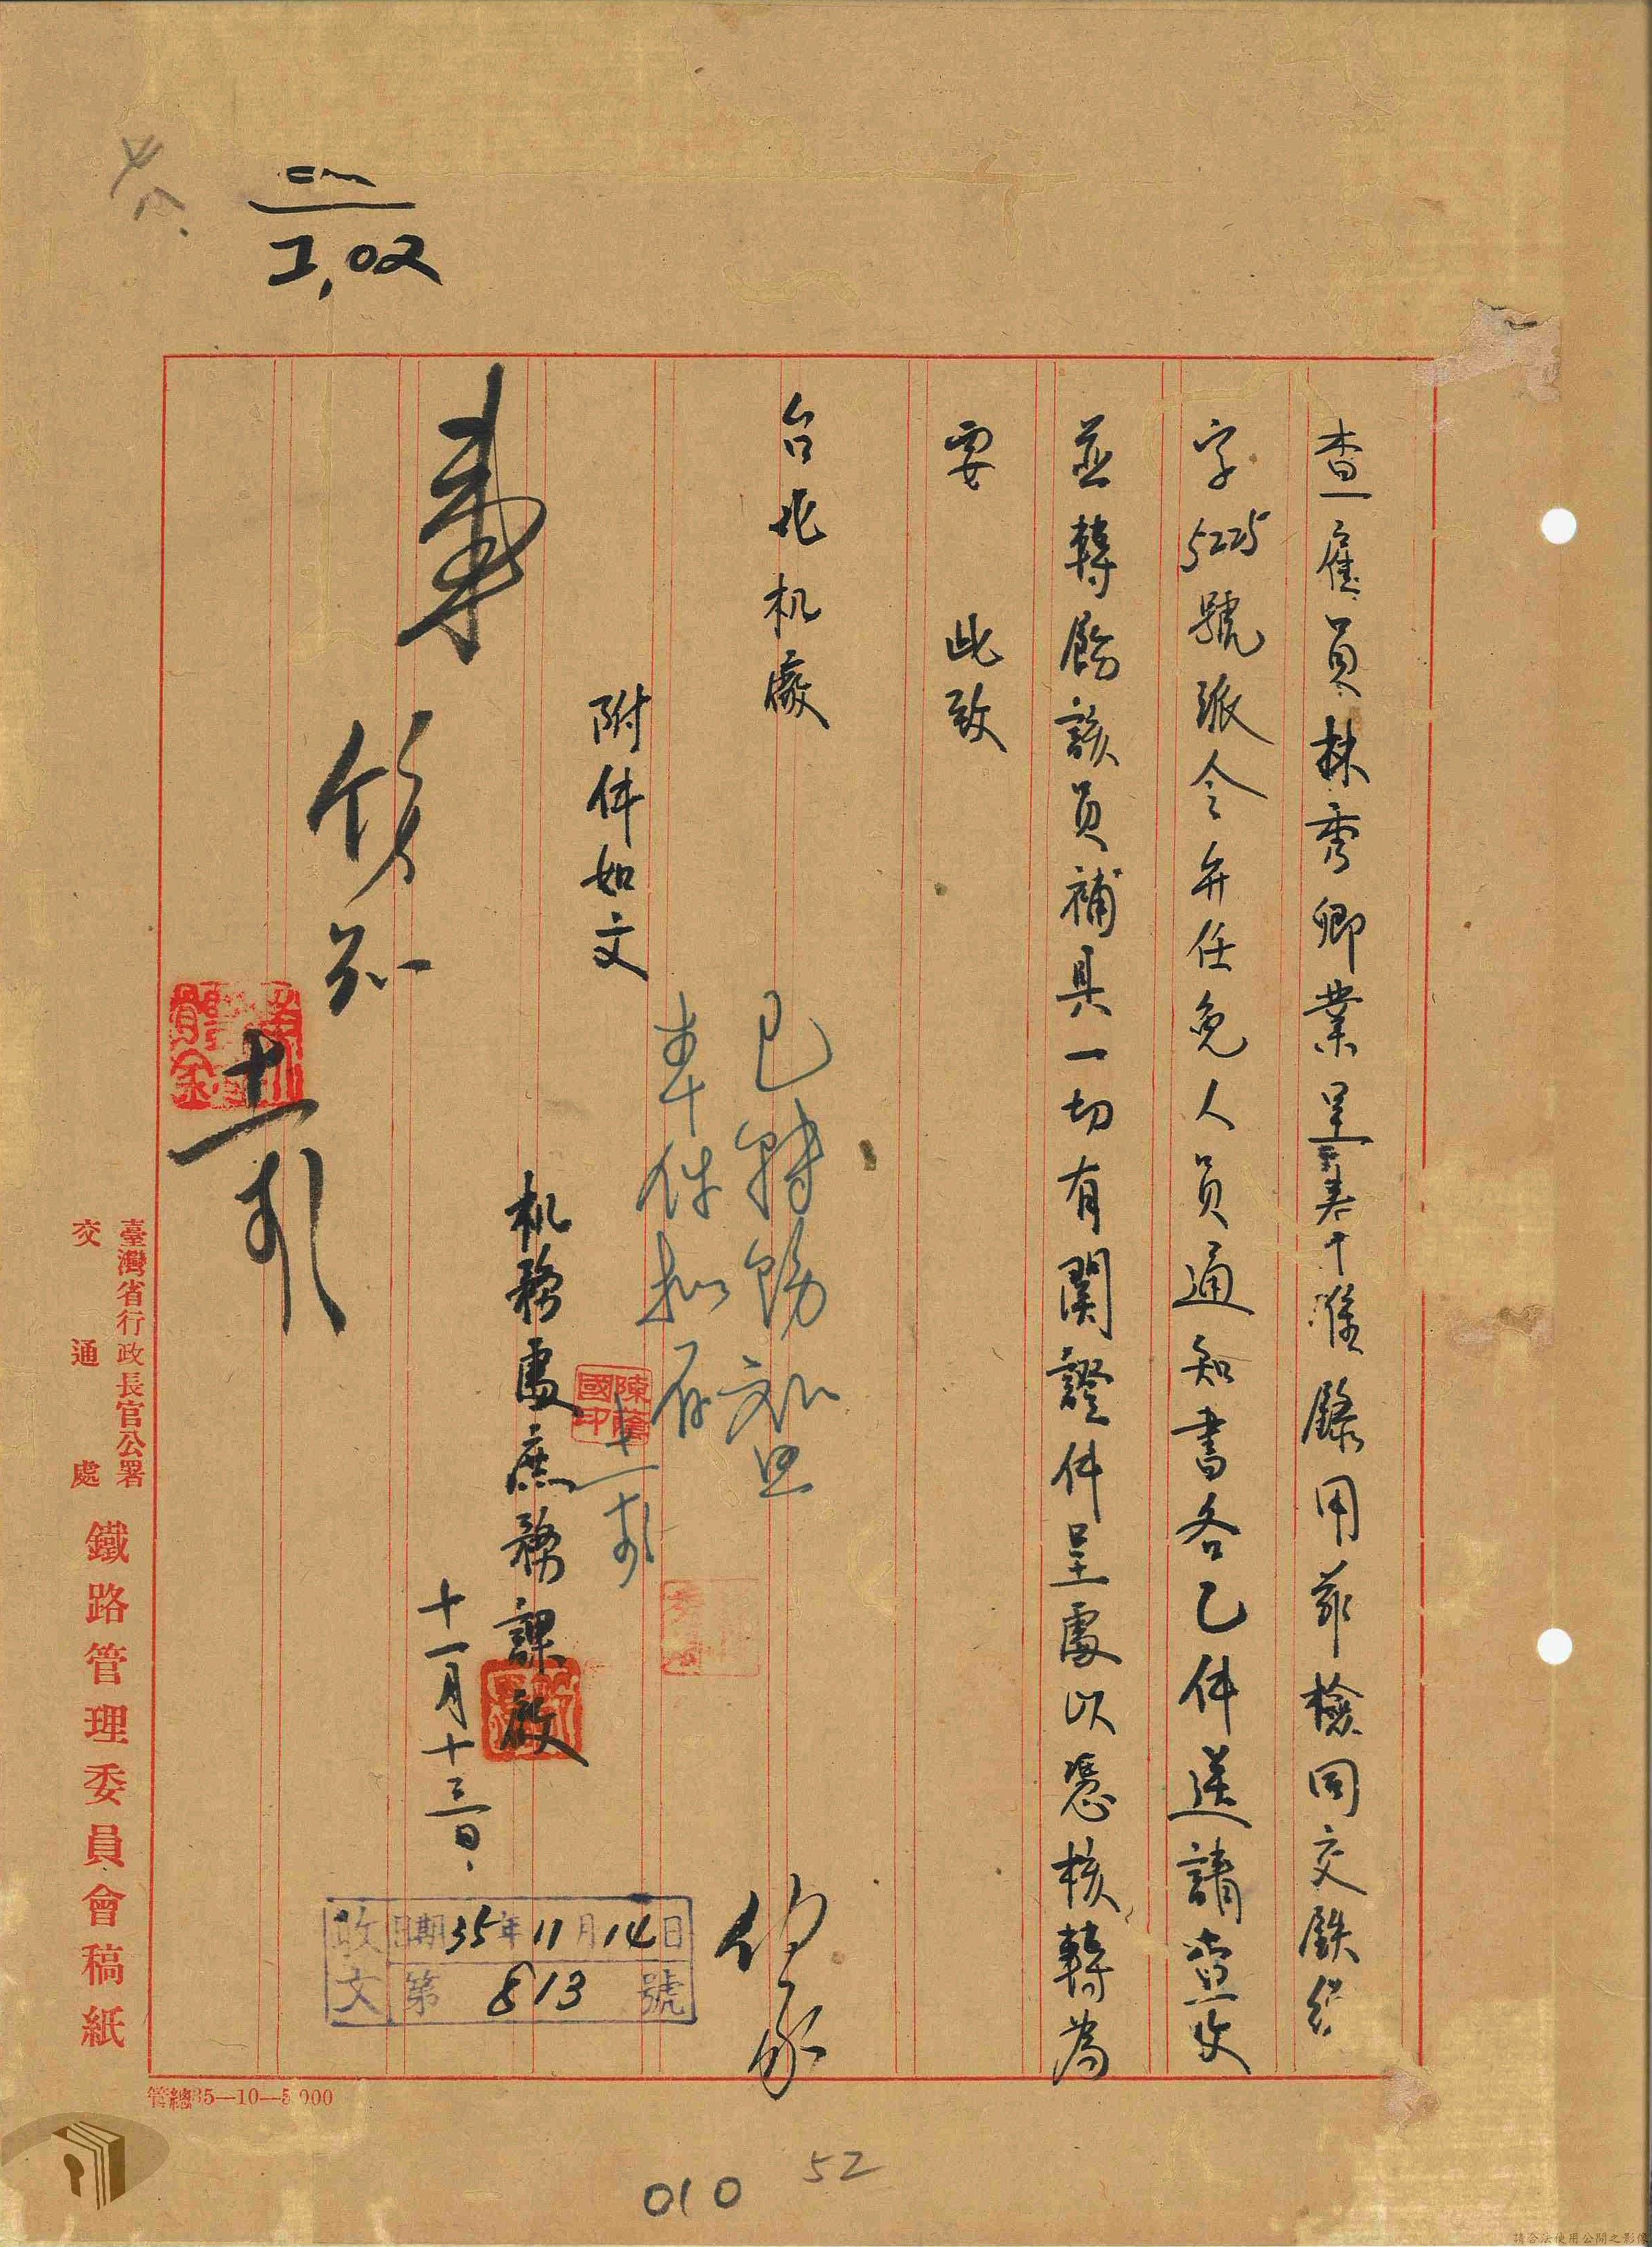 查雇員林秀卿業呈奉准錄用茲檢同交鉄
字5225號派令并任免人員通知書各乙件送請查收
並轉飭該員補具一切有関證件呈處以憑核轉為
要 此致
台北机廠
附件如文
已轉飭知照
本件擬存
机務處庶務課啟
十一月十三日
收文 日期35年11月14日
第813號
臺灣省行政長官公署
交通處
鐵路管理委員會稿紙
管總35—10—5000
陳蔭國印
010
52
請合法使用公開之影像